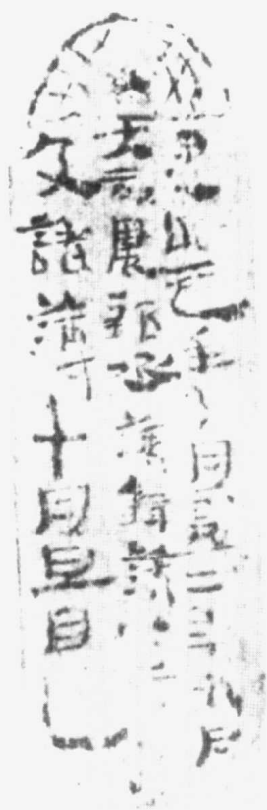 建始元年七月盡二年九月
大司農部丞簿錄簿算
及諸簿十月旦見